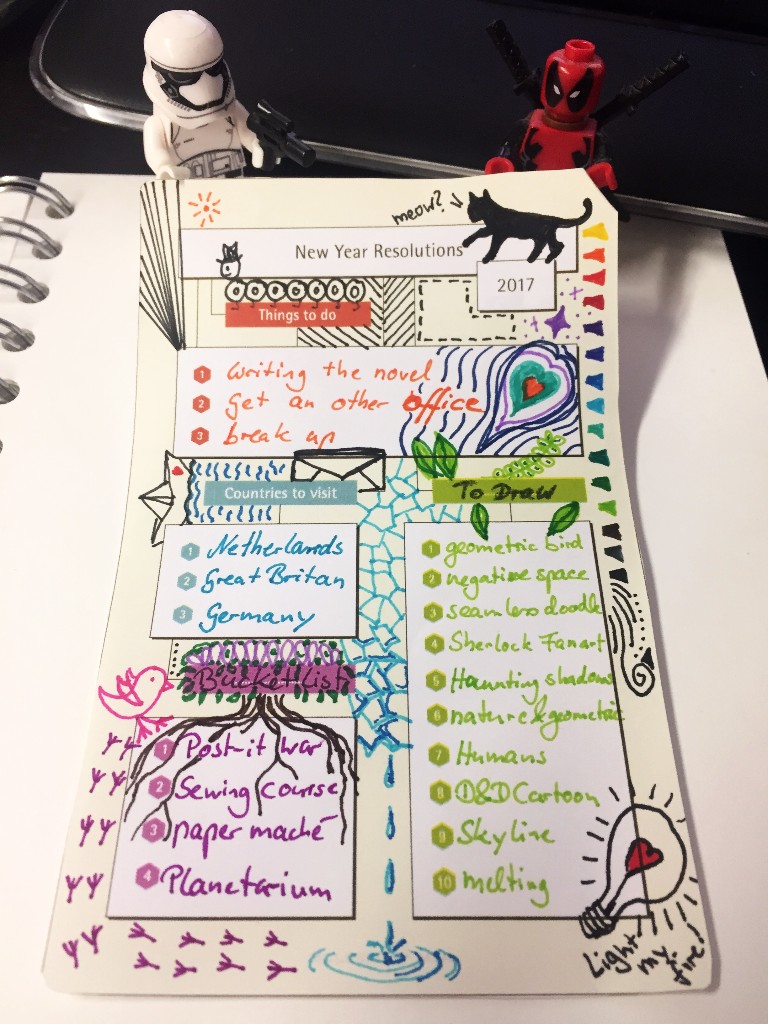 meow?
New Year Resolutions
2017
Things to do
1 Writing the novel
2 get an other office
3 break up
Countries to visit
1 Netherlands
2 Great Britan
3 Germany
To Draw
1 geometric bird
2 negative space
3 seamless doodle
4 Sherlock Fanart
5 Haunting shadows
6 nature & geometric
7 Humans
8 D&D Cartoon
9 Skyline
10 melting
Bucketlist
1 Post-it war
2 Sewing course
3 paper maché
4 Planetarium
Light my fire